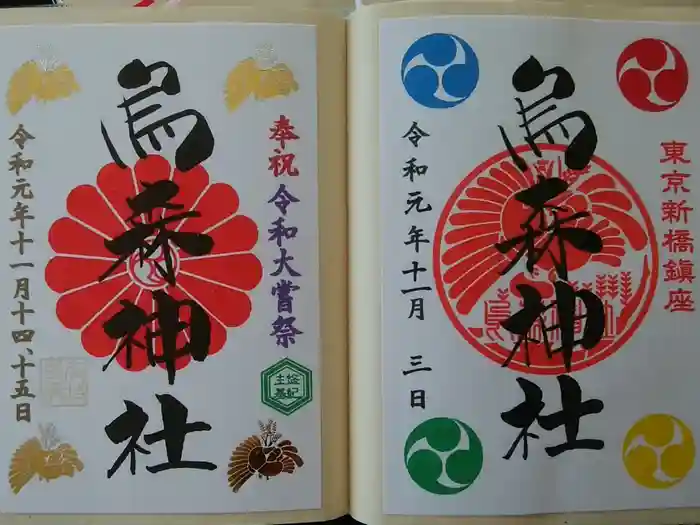 東京新橋鎮座
烏森神社
令和元年十一月三日
奉祝令和大嘗祭
烏森神社
令和元年十一月十四、十五日